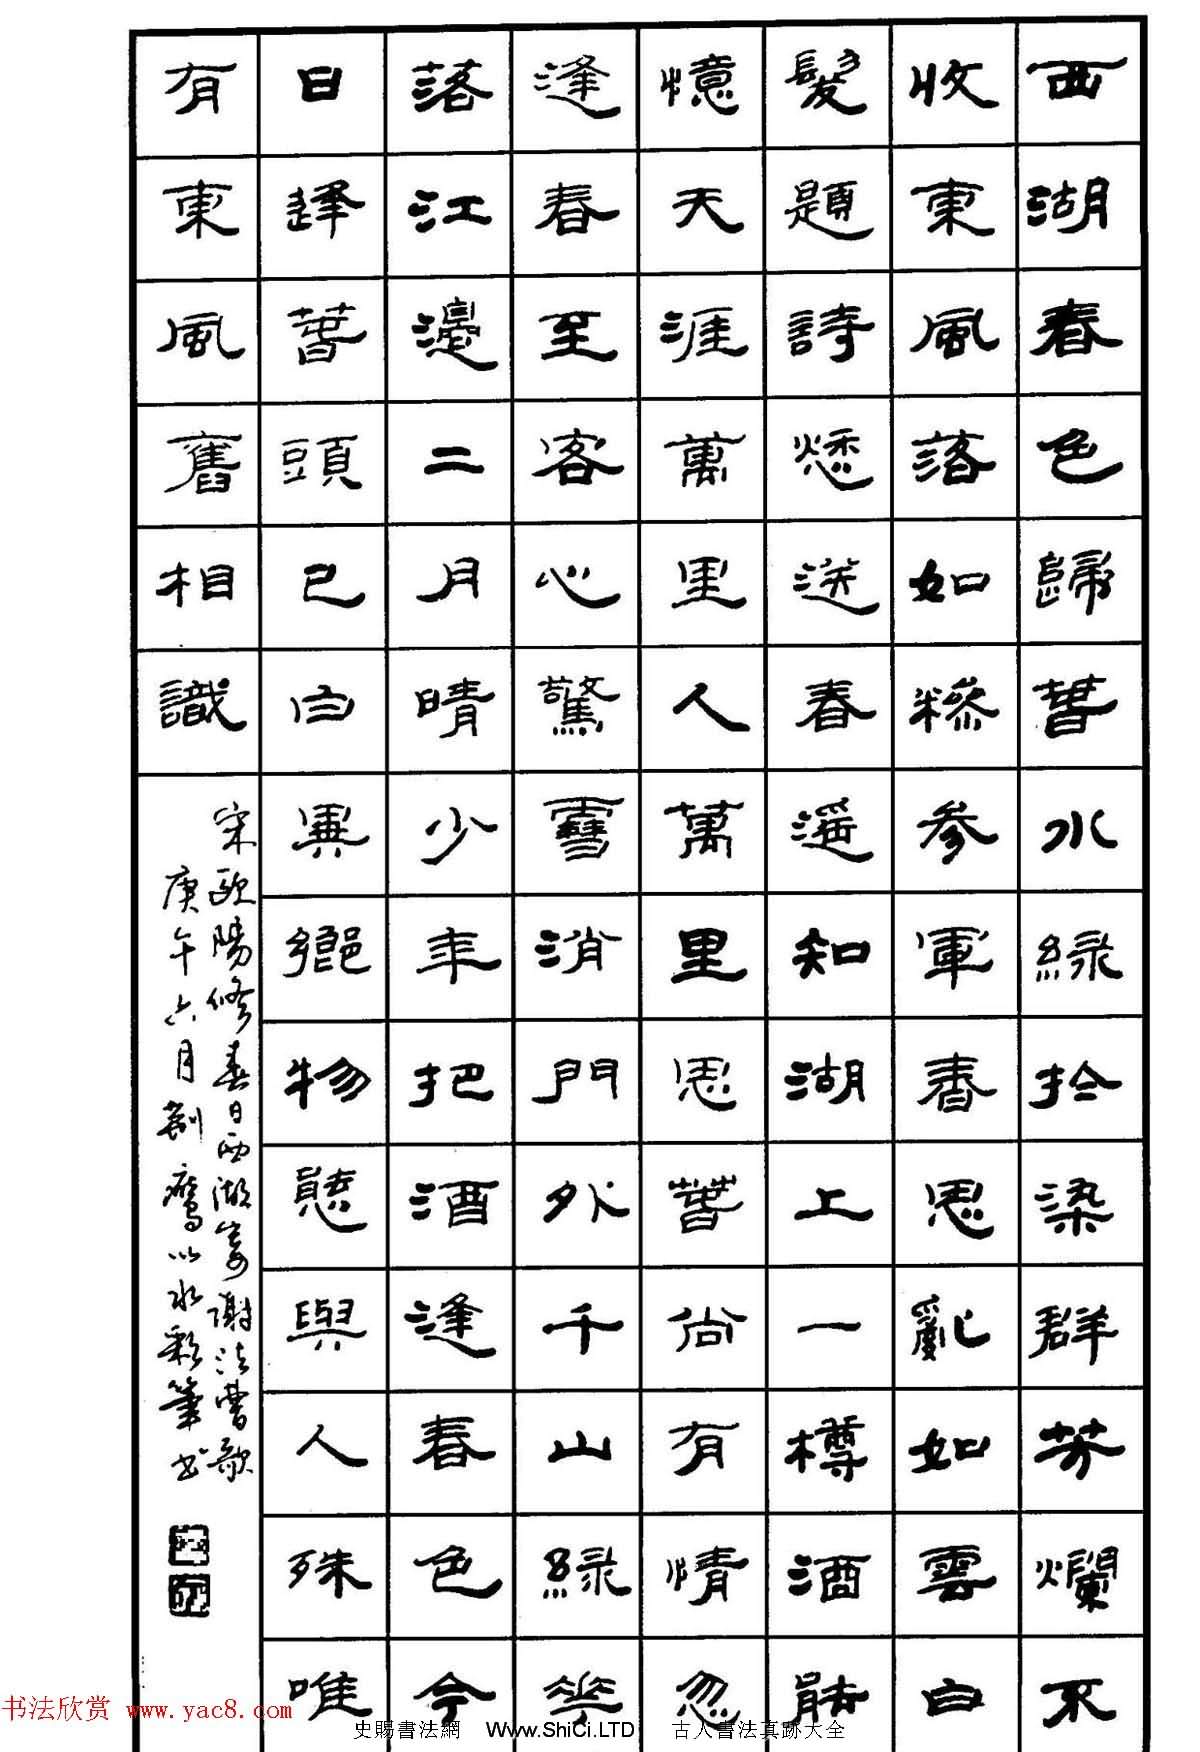 西湖春色歸春水綠於染群芳爛不
收東風落如糝參軍春思亂如雲白
髮題詩愁送春遙知湖上一樽酒能
憶天涯萬里人萬里思春尚有情忽
逢春至客心驚雪消門外千山綠花
落江邊二月晴少年把酒逢春色今
日逢春頭已白異鄉物態與人殊唯
有東風舊相識
宋歐陽修春日西湖寄謝法曹歌
庚午六月 鷹以水彩筆書
书法欣赏 www.yac8.com
史賜書法網 Www.ShiCi.LTD 古人書法真跡大全